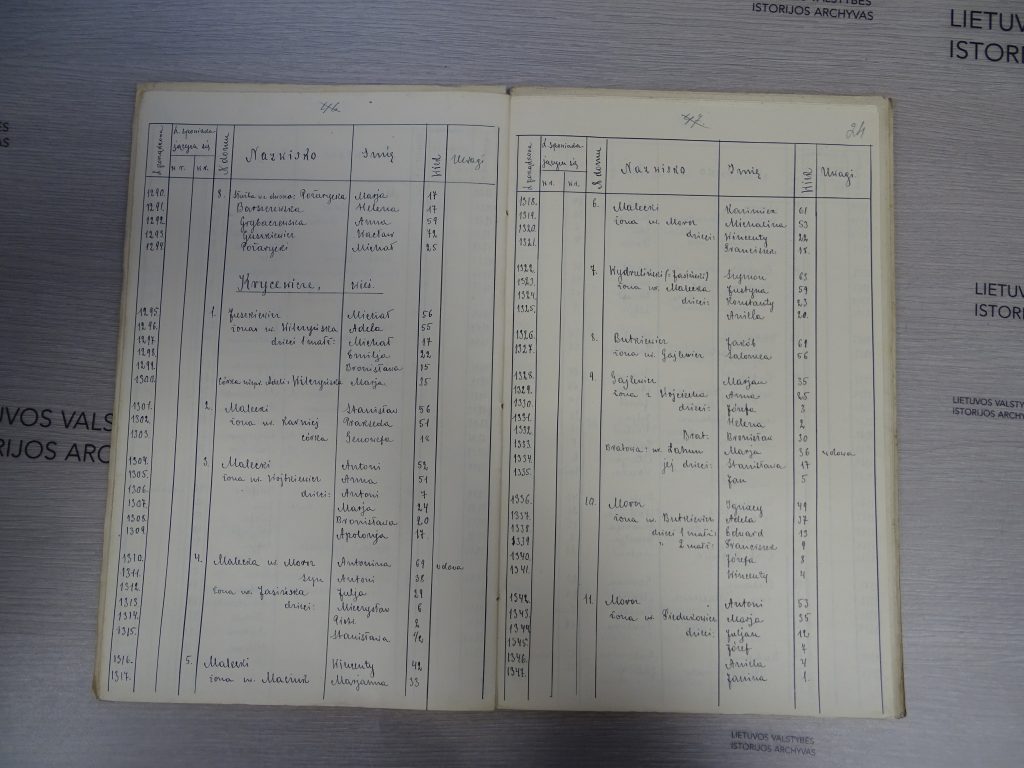 ISTORIJOS ARCHYVAS
LIETUV
ISTORI
LIETUV
ISTORI
VOS VALSTYBĖS
RIJOS ARCHYVAS
UVOS VALS
ORIJOS ARC
LIETUVOS VALSTY
ISTORIJOS ARCHYV
LIETUVOS VALSTYBĖS
ISTORIJOS ARCHYVAS
46
N domu Nazwisko Imię Wiek Uwagi
1290. 8. Marja 17
1291. Helena 17
1292. Anna 59
1293. Wacław 72
1294. Michał 25
wieś
1295. 1. Juszkiewicz Michał 56
1296. żona w. Wilczyńska Adela 55
1297. dzieci 1 małż: Michał 17
1298. Emilja 22
1299. Bronisława 15
1300. Wilczyńska Marja 25
1301. 2. Malecki Stanisław 56
1302. żona w. Prakseda 51
1303. córka Genowefa 18
1304. 3. Malecki Antoni 52
1305. żona w. Wojtkiewicz Anna 51
1306. dzieci: Antoni 7
1307. Marja 24
1308. Bronisława 20
1309. Apolonja 17
1310. 4. Malecka w. Moroz Antonina 69 wdowa
1311. syn Antoni 38
1312. żona w. Jasińska Julja 29
1313. dzieci: Mieczysław 6
1314. 2
1315. Stanisława 1/2
1316. 5. Malecki Wincenty 42
1317. żona w. Marjanna 33
42
24
N domu Nazwisko Imię Wiek Uwagi
1318. 6. Malecki Kazimierz 61
1319. żona w. Moroz Michalina 53
1320. dzieci: Wincenty 22
1321. Franciszek 18
1322. 7. Szymon 63
1323. żona w. Malecka Justyna 59
1324. dzieci: Konstanty 23
1325. Aniela 20
1326. 8. Butkiewicz Jakób 69
1327. żona w. Gajlewicz Salomea 56
1328. 9. Gajlewicz Marjan 35
1329. żona z Anna 25
1330. dzieci: Józefa 3
1331. Helena 2
1332. Brat. Bronisław 30
1333. Bratowa: w. Marja 36 wdowa
1334. jej dzieci: Stanisława 17
1335. Jan 5
1336. 10. Moroz Ignacy 49
1337. żona w. Butkiewicz Adela 37
1338. dzieci 1 małż: Eduard 13
1339. " 2 małż: Franciszek 9
1340. Józefa 8
1341. Wincenty 4
1342. 11. Moroz Antoni 53
1343. żona w. Marja 35
1344. dzieci: Juljan 12
1345. Józef 7
1346. Aniela 4
1347. Janina 1.